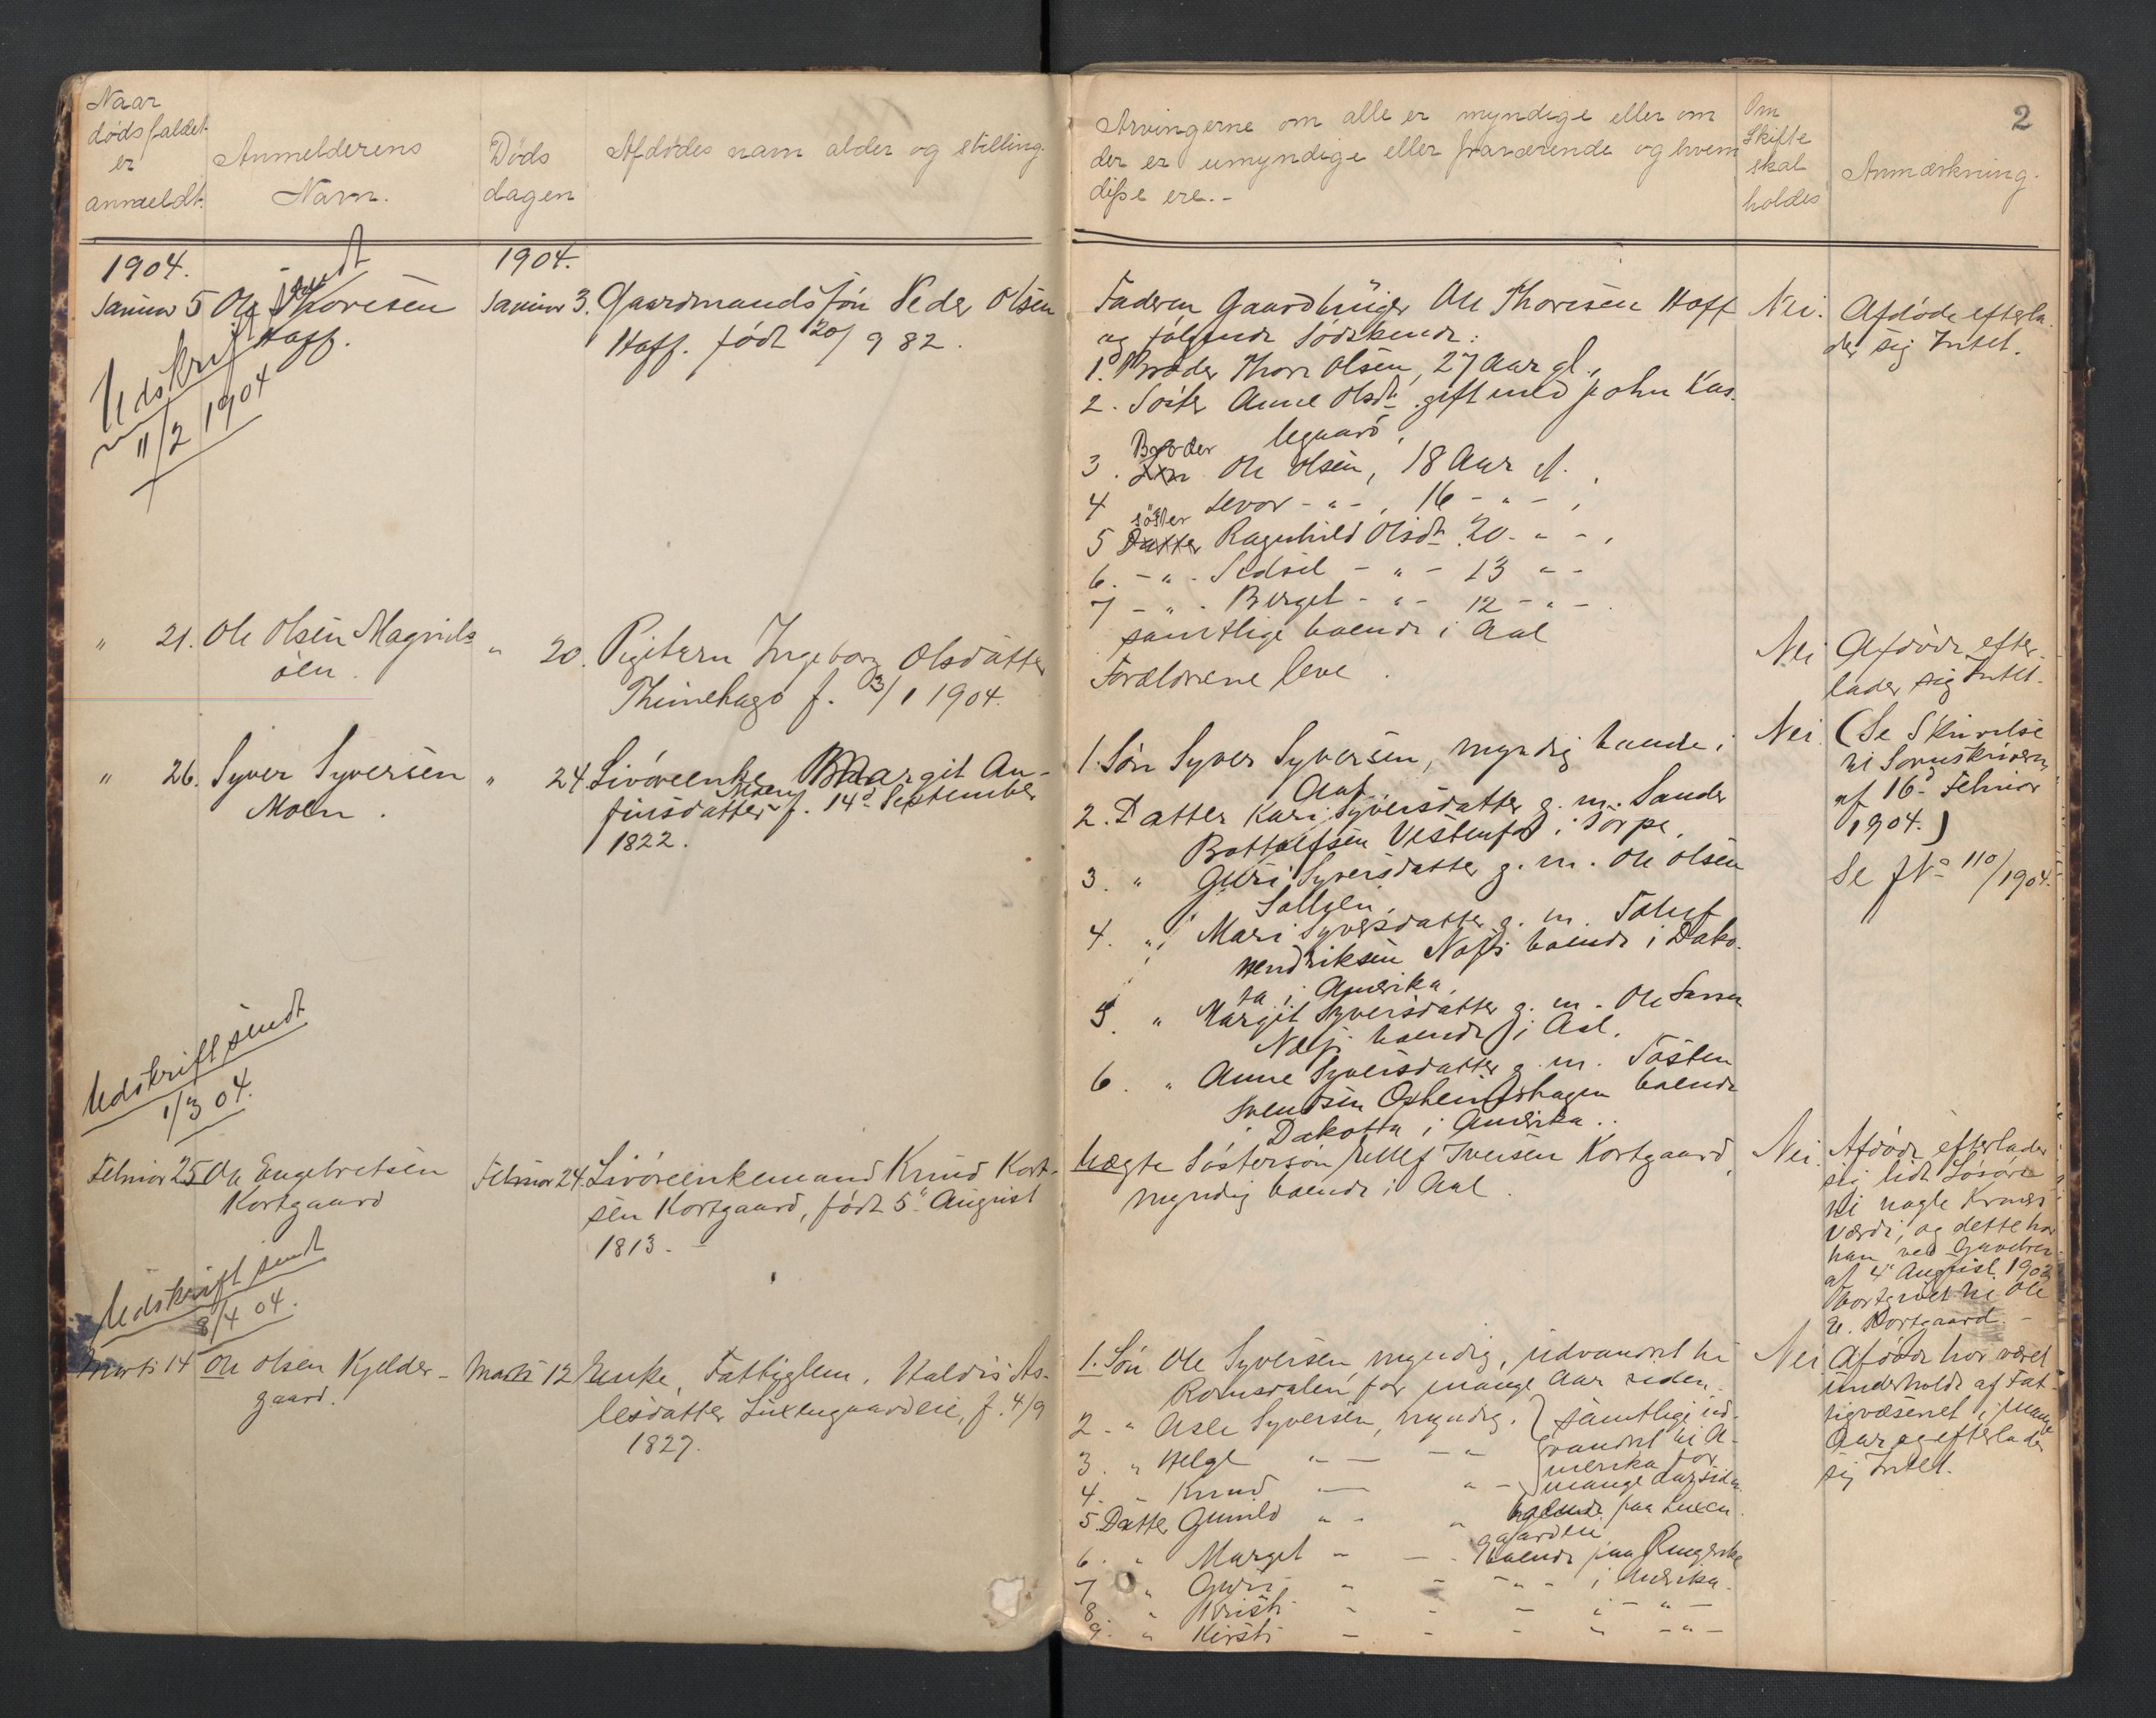 2
Naar
dødsfaldet
er
anmeldt.
Anmelderens
Navn.
Døds
dagen
Afdødes navn alder og stilling.
Arvingerne om alle er myndige eller om
der er umyndige eller fraværende og hvem
disse ere.-
Om
Skifte
skal
holdes
Anmærkning.
1904.
Januar 5 Ole Thoresen
Hoff.
Udskrift sendt
11/2 1904
1904.
Januar 3. Gaardmandssøn Peder Olsen
Hoff. født 20/9 82.
Faderen Gaardbruger Ole Thoresen Hoff
og følgende Sødskende:
1. Broder Thore Olsen, 27 Aar gl.,
2. Søster Anne Olsdt. gift med John Kas-
legaard,
3. Broder Ole Olsen, 18 Aar gl.
4 Levor - " - , 16 - " - ,
5 Søster Ragnhild Olsdt. 20 - " - ,
6. - " - Sidsel - " - 13 " -
7 - " - Birget - " - 12 - " - .
samtlige boende i Aal
Nei.
Afdøde efterla-
der sig Intet.
" 21. Ole Olsen Magnils-
øen.
" 20. Pigebarn Ingeborg Olsdatter
Thimehago f. 3/1 1904.
Forældrene leve.
Nei
Afdøde efter-
lader sig Intet.
" 26. Syver Syversen
Moen.
" 24. Livøreenke Margit An-
finsdatter f. 14d September
1822.
1. Søn Syver Syversen, myndig boende i
Aal.
2. Datter Kari Syversdatter g. m. Sander
Bottolfsen Vestenfor i Torpe.
3. " Guri Syversdatter g. m. Ole Olsen
4. " Mari Syversdatter g. m. Tolef
Hendriksen boende i Dako-
ta i Amerika,
5. " Margit Syversdatter g. m. Ole
boende i Aal.
6. " Anne Syversdatter g. m. Tosten
Svendsen boende
i Dakotta i Amerika..
Nei.
(Se Skrivelse
til Sorenskriveren
af 16d Februar
1904.)
Se JNo 110/1904.
Udskrift sendt
1/3 04.
Februar 25 Ole Engebretsen
Kortgaard
Februar 24. Livøreenkemand Knud Knut-
sen Kortgaard, født 5" August
1813. -
Uægte Søstersøn Iversen Kortgaard,
myndig boende i Aal.
Nei.
Afdøde efterlader
sig lidt Løsøre
til nogle Kroners
Værdi, og dette har
han ved Gavebrev
af 4" August 1902
bortgivet til Ole
E. Kortgaard. -
Udskrift sendt
8/4 04.
Marts 14 Ole Olsen Kjelder-
gaard.
Marts 12 Enke, Fattiglem, Haldis As-
lesdatter Luxengaardeie, f. 4/9
1827.
1. Søn Ole Syversen myndig, udvandret til
Romsdalen for mange Aar siden.
2. " Asle Syversen, myndig. } samtlige ud-
3. " Helge " — — " vandret til A-
4. " Knud — " - merika for
mange Aar siden.
5. Datter Gunild " - " boende paa Luxen-
gaardeie
6. " Marget - — boende paa Ringerike
7 " Guri - - - " - i Amerika.
8. " Kristi - - - i - " -
9. " Kirsti - - - " - " -
Nei
Afdøde har været
underholdt af Fat-
tigvæsenet i mange
Aar og efterlader
sig Intet.